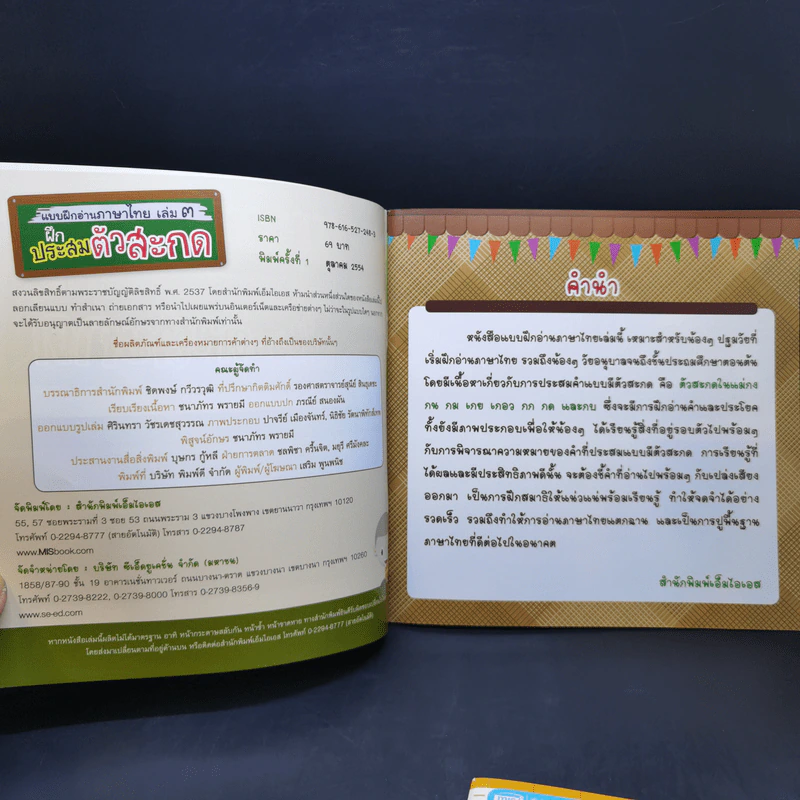 แบบฝึกอ่านภาษาไทย เล่ม ๓
ฝึก
ประสมตัวสะกด
ISBN 978-616-527-248-
ราคา 69 บาท
พิมพ์ครั้งที่ 1 ตุลาคม 2554
สงวนลิขสิทธิ์ตามพระราชบัญญัติลิขสิทธิ์ พ.ศ. 2537 โดยสำนักพิมพ์เอ็มไอเอส ห้ามนำส่วนหนึ่งส่วนใดของหนังสือเล่มนี้ไป
ลอกเลียนแบบ ทำสำเนา ถ่ายเอกสาร หรือนำไปเผยแพร่บนอินเตอร์เน็ตและเครือข่ายต่างๆ ไม่ว่าจะในรูปแบบใดๆ นอกจาก
จะได้รับอนุญาตเป็นลายลักษณ์อักษรจากทางสำนักพิมพ์เท่านั้น
ชื่อผลิตภัณฑ์และเครื่องหมายการค้าต่างๆ ที่อ้างถึงเป็นของบริษัทนั้นๆ
คณะผู้จัดทำ
บรรณาธิการสำนักพิมพ์ ชิตพงษ์ กวีวรวุฒิ ที่ปรึกษากิตติมศักดิ์ รองศาสตราจารย์สุนีย์ สินธุเดชะ
เรียบเรียงเนื้อหา ชนาภัทร พรายมี ออกแบบปก ภรณีย์ สนองผัน
ออกแบบรูปเล่ม ศิรินทรา วัชรเดชสุวรรณ ภาพประกอบ ปาจรีย์ เมืองจันทร์, นิธิชัย รัตนาพิทักษ์เทพ
พิสูจน์อักษร ชนาภัทร พรายมี
ประสานงานสื่อสิ่งพิมพ์ บุษกร กู้หลี ฝ่ายการตลาด ชลพิชา ศรีนิ่งจิต, มยุรี ศรีมังคละ
พิมพ์ที่ บริษัท พิมพ์ดี จำกัด ผู้พิมพ์/ผู้โฆษณา เสริม พูนพนิช
จัดพิมพ์โดย : สำนักพิมพ์เอ็มไอเอส
55, 57 ซอยพระรามที่ 3 ซอย 53 ถนนพระราม 3 แขวงบางโพงพาง เขตยานนาวา กรุงเทพฯ 10120
โทรศัพท์ 0-2294-8777 (สายอัตโนมัติ) โทรสาร 0-2294-8787
www.MISbook.com
จัดจำหน่ายโดย : บริษัท ซีเอ็ดยูเคชั่น จำกัด (มหาชน)
1858/87-90 ชั้น 19 อาคารเนชั่นทาวเวอร์ ถนนบางนา-ตราด แขวงบางนา เขตบางนา กรุงเทพฯ 10260
โทรศัพท์ 0-2739-8222, 0-2739-8000 โทรสาร 0-2739-8356-9
www.se-ed.com
หากหนังสือเล่มนี้ผลิตไม่ได้มาตรฐาน อาทิ หน้ากระดาษสลับกัน หน้าซ้ำ หน้าขาดหาย ทางสำนักพิมพ์ยินดีรับผิดชอบเปลี่ยน
โดยส่งมาเปลี่ยนตามที่อยู่ด้านบน หรือติดต่อสำนักพิมพ์เอ็มไอเอส โทรศัพท์ 0-2294-8777 (สายอัตโนมัติ)
คำนำ
หนังสือแบบฝึกอ่านภาษาไทยเล่มนี้ เหมาะสำหรับน้องๆ ปฐมวัยที่
เริ่มฝึกอ่านภาษาไทย รวมถึงน้องๆ วัยอนุบาลจนถึงชั้นประถมศึกษาตอนต้น
โดยมีเนื้อหาเกี่ยวกับการประสมคำแบบมีตัวสะกด คือ ตัวสะกดในแม่กง
กน กม เกย เกอว กก กด และกบ ซึ่งจะมีการฝึกอ่านคำและประโยค
ทั้งยังมีภาพประกอบเพื่อให้น้องๆ ได้เรียนรู้สิ่งที่อยู่รอบตัวไปพร้อมๆ
กับการพิจารณาความหมายของคำที่ประสมแบบมีตัวสะกด การเรียนรู้ที่
ได้ผลและมีประสิทธิภาพดีนั้น จะต้องชี้คำที่อ่านไปพร้อมๆ กับเปล่งเสียง
ออกมา เป็นการฝึกสมาธิให้แน่วแน่พร้อมเรียนรู้ ทำให้จดจำได้อย่าง
รวดเร็ว รวมถึงทำให้การอ่านภาษาไทยแตกฉาน และเป็นการปูพื้นฐาน
ภาษาไทยที่ดีต่อไปในอนาคต
สำนักพิมพ์เอ็มไอเอส